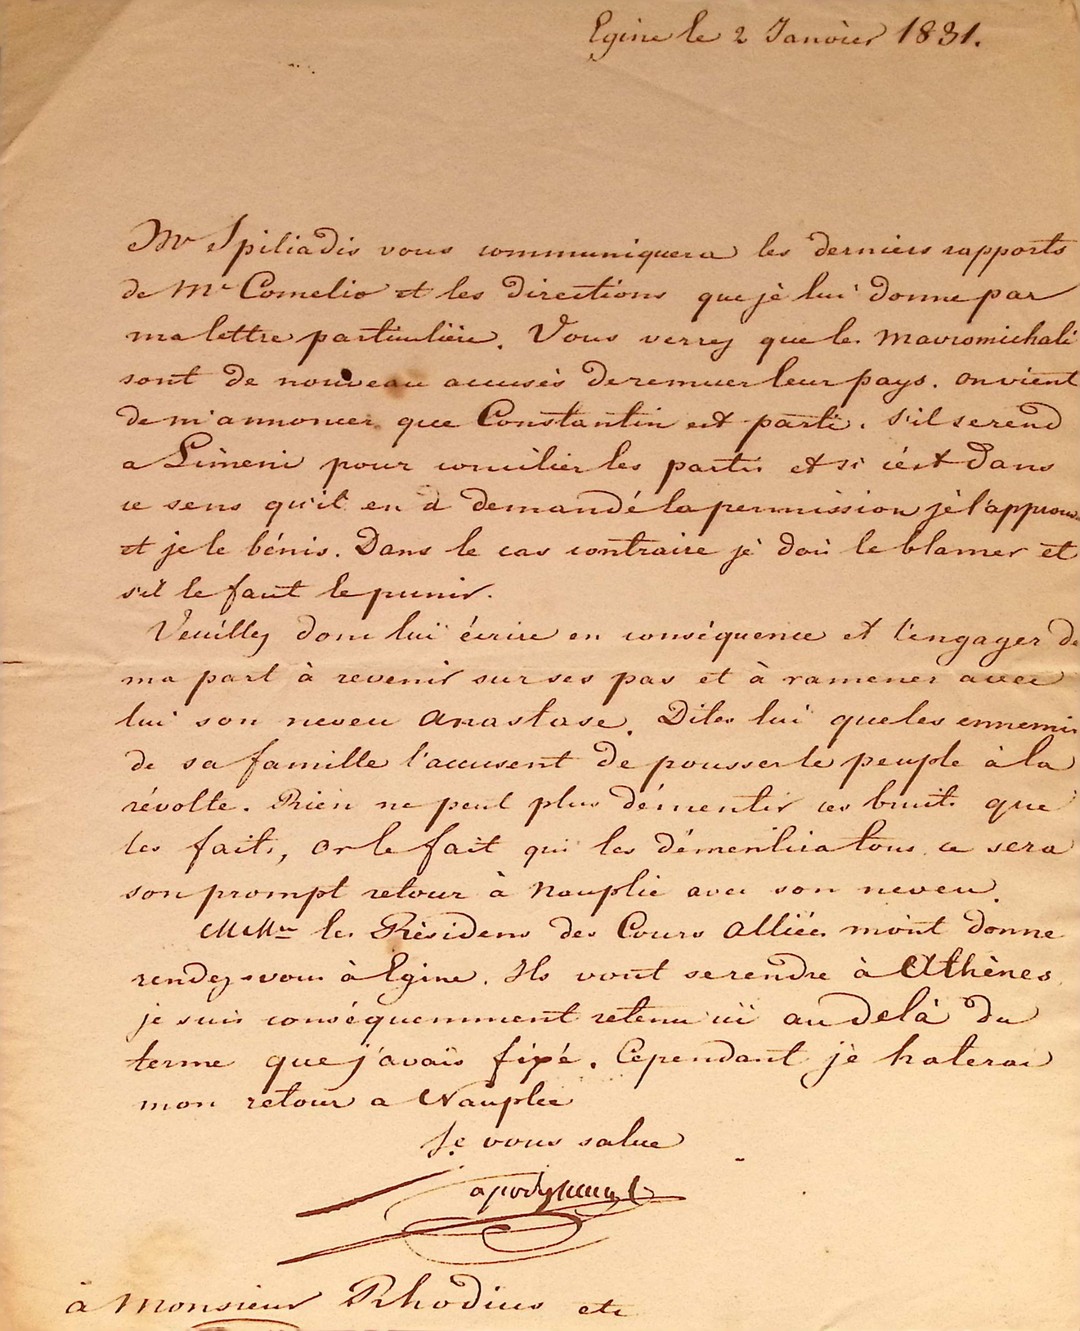 Egine le 2 Janvier 1831.
Mr Spiliadis vous communiquera les derniers rapports
de Mr Cornelio et les directions que je lui donne par
ma lettre particulière. Vous verrez que les Mavromichali
sont de nouveau accusés de remuer leur pays. on vient
de m'annoncer que Constantin est parti. s'il se rend
a Limeni pour concilier les partis et si c'est dans
ce sens qu'il en a demandé la permission je l'approuve
et je le bénis. Dans le cas contraire je dois le blamer et
s'il le faut le punir.
Veuillez donc lui écrire en conséquence et l'engager de
ma part à revenir sur ses pas et à ramener avec
lui son neveu anastase. Dites lui que les ennemis
de sa famille l'accusent de pousser le peuple à la
révolte. Rien ne peut plus démentir ces bruits que
les faits, or le fait qui les démentira tous ce sera
son prompt retour à Nauplie avec son neveu.
MMrs les Résidens des Cours Alliées m'ont donné
rendez-vous à Egine. Ils vont se rendre à Athènes,
je suis conséquemment retenu ici au delà du
terme que j'avais fixé. Cependant je haterai
mon retour a Nauplie
Je vous salue
à Monsieur Rhodius etc